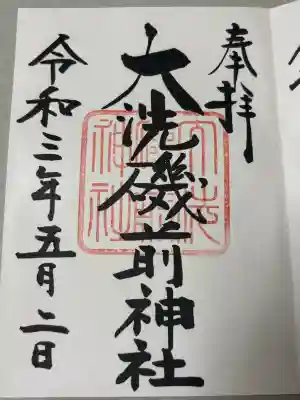 奉拝
大洗磯前神社
令和三年五月二日